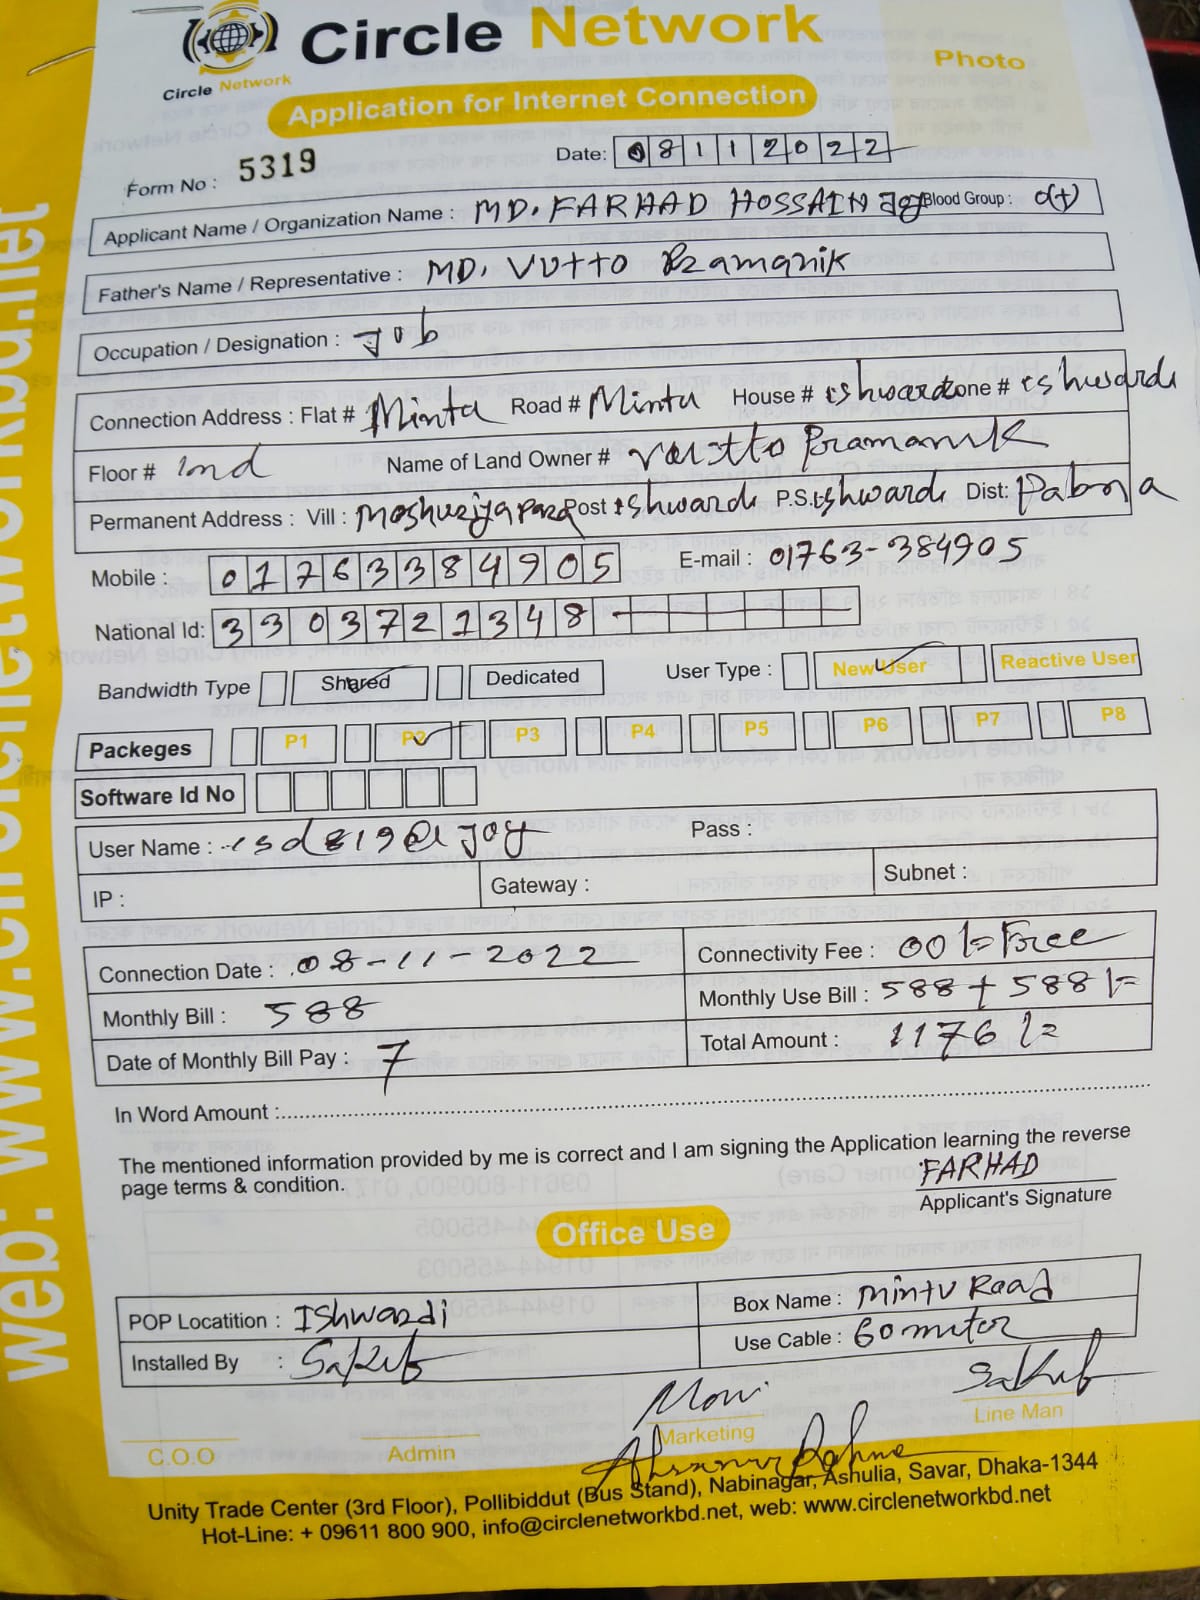 Circle Network
Circle Network
Photo
Application for Internet Connection
Form No : 5319
Date: 08112022
Applicant Name / Organization Name : MD. FARHAD HOSSAIN Blood Group : O(+)
Father's Name / Representative : MD. VUTTO Pramanik
Occupation / Designation : Job
Connection Address : Flat # Mintu Road # Mintu House # ishwardi Zone # ishwardi
Floor # 2nd Name of Land Owner # Pramanik
Permanent Address : Vill : Moshuriyapara Post ishwardi P.S. ishwardi Dist: Pabna
Mobile : 01763384905 E-mail : 01763-384905
National Id: 3303721348
Bandwidth Type Shared Dedicated User Type : New User Reactive User
Packeges P1 P2 P3 P4 P5 P6 P7 P8
Software Id No
User Name : Pass :
IP : Gateway : Subnet :
Connection Date : 08-11-2022 Connectivity Fee : 00/= Free
Monthly Bill : 588 Monthly Use Bill : 588+588/=
Date of Monthly Bill Pay : 7 Total Amount : 1176/=
In Word Amount :
The mentioned information provided by me is correct and I am signing the Application learning the reverse
page terms & condition.
FARHAD
Applicant's Signature
Office Use
POP Locatition : IShwardi Box Name : Mintu Road
Installed By : Sakib Use Cable : 60 meter
Sakib
C.O.O Admin Marketing Line Man
Unity Trade Center (3rd Floor), Pollibiddut (Bus Stand), Nabinagar, Ashulia, Savar, Dhaka-1344
Hot-Line: + 09611 800 900, info@circlenetworkbd.net, web: www.circlenetworkbd.net
web: www.circlenetworkbd.net